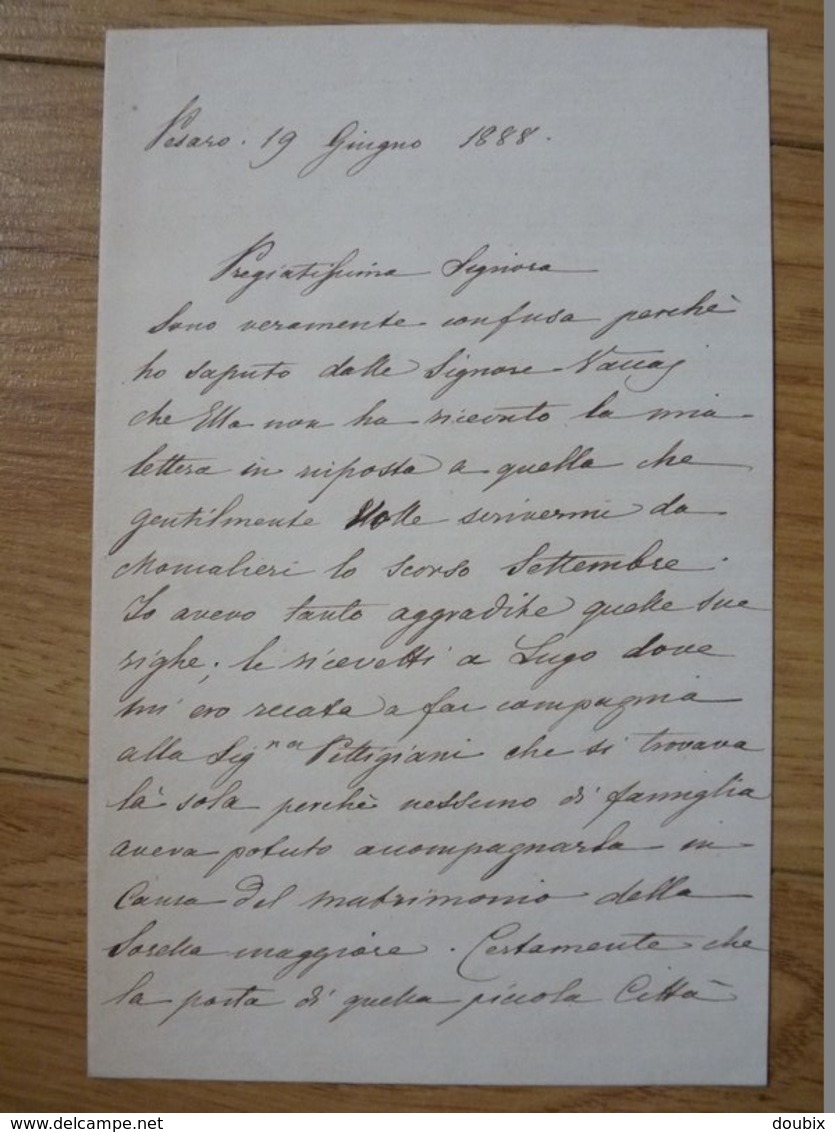 Pesaro. 19 Giugno 1888.
Pregiatissima Signora
Sono veramente confusa perchè
ho saputo dalle Signore Vaccaj
che Ella non ha ricevuto la mia
lettera in risposta a quella che
gentilmente volle scrivermi da
Moncalieri lo scorso Settembre.
Io avevo tanto aggradite quelle sue
righe; le ricevetti a Lugo dove
mi ero recata a far compagnia
alla Sig.na Pettigiani che si trovava
là sola perchè nessuno di famiglia
aveva potuto accompagnarla in
causa del matrimonio della
Sorella maggiore. Certamente che
la posta di quella piccola Città
www.delcampe.net
doubix